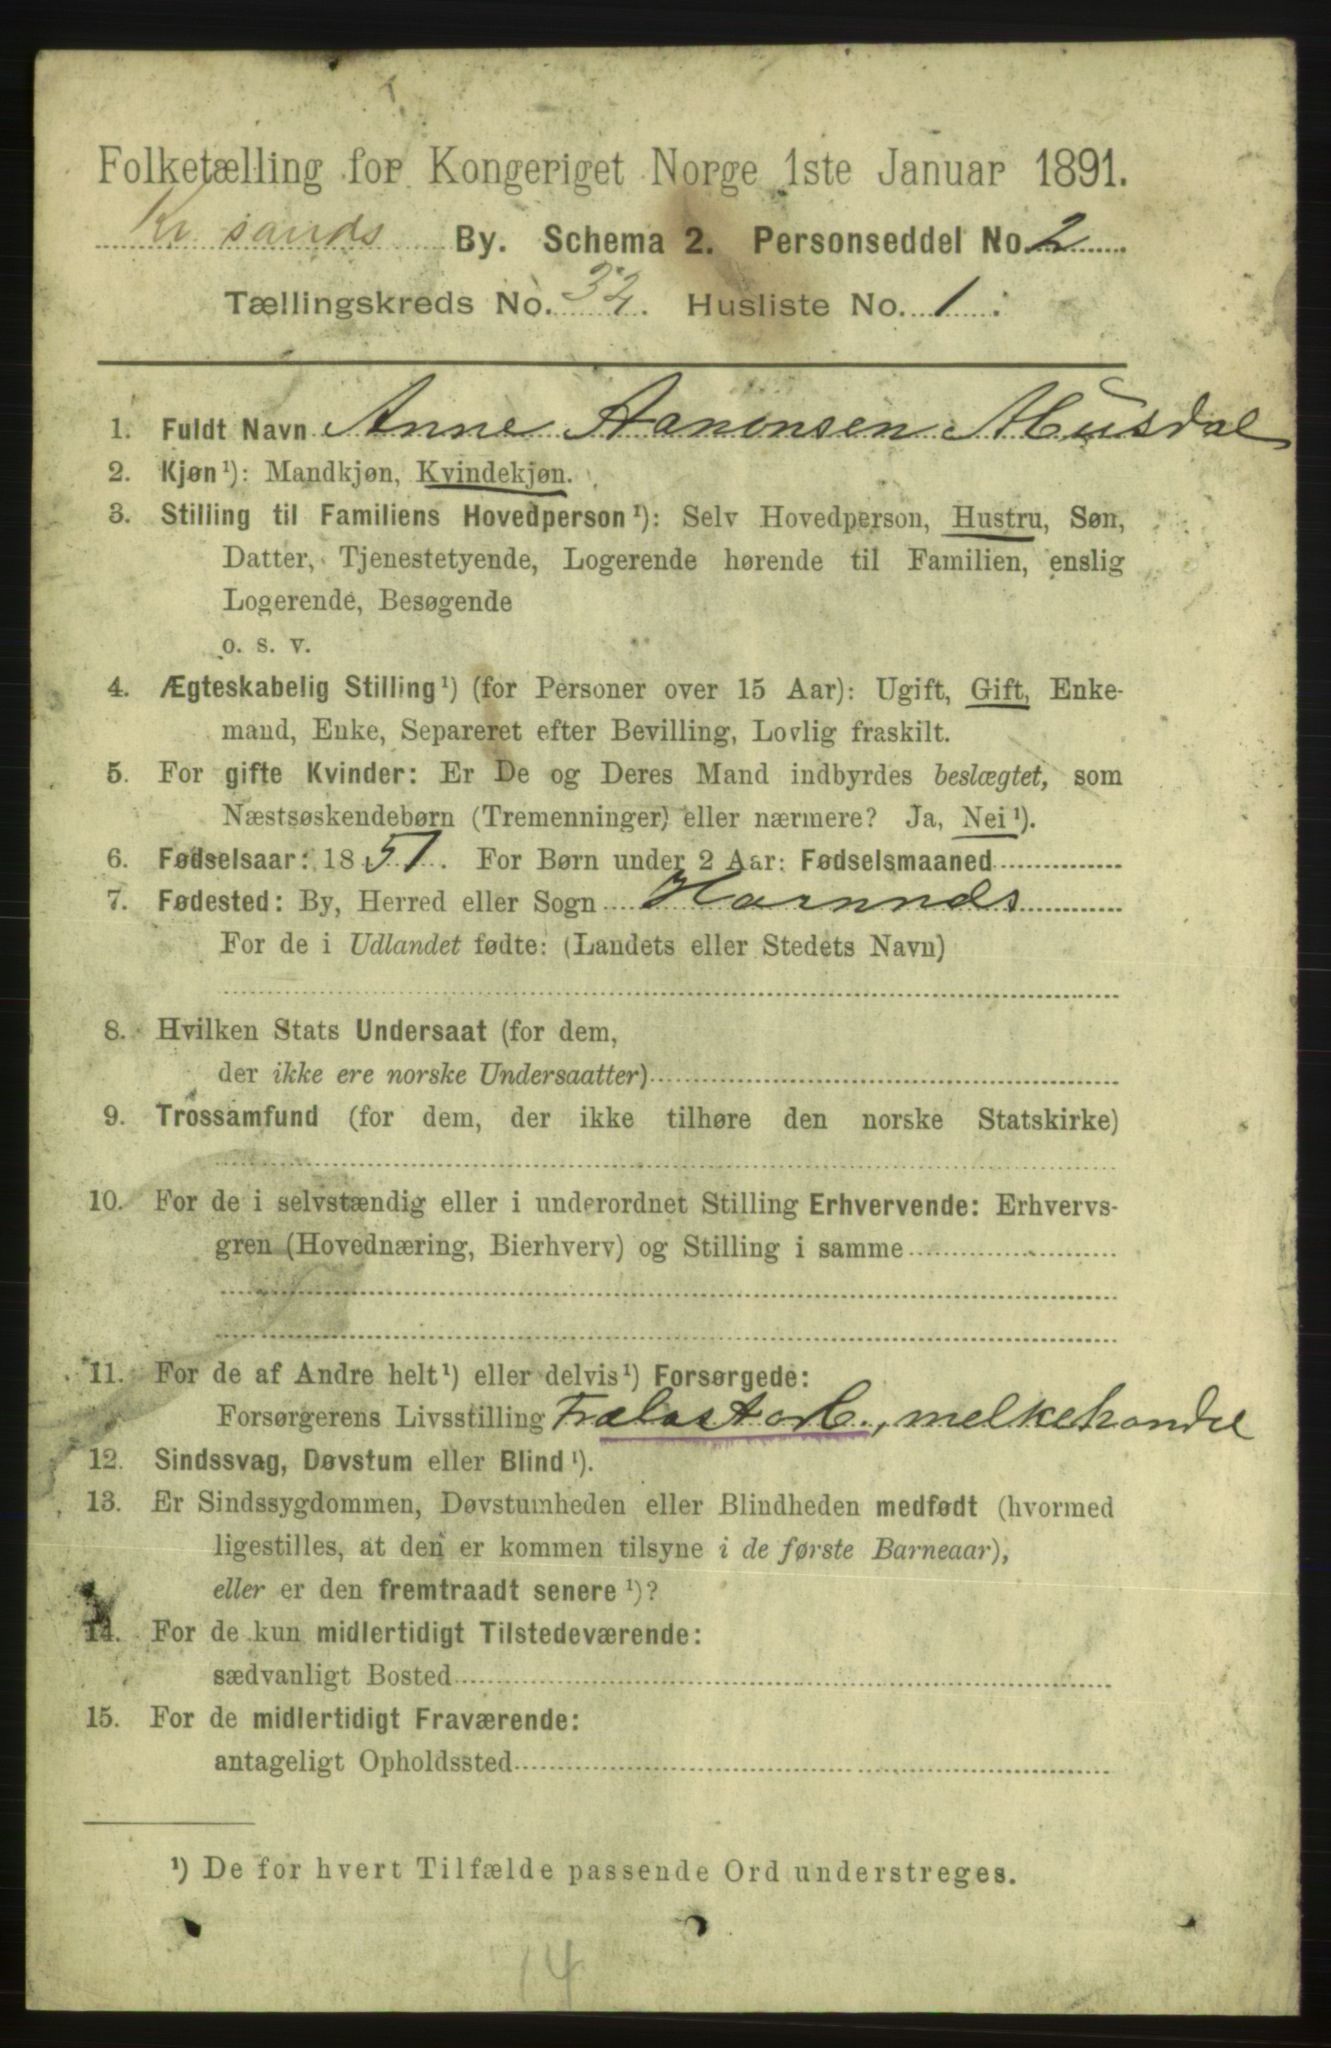 Folketælling for Kongeriget Norge 1ste Januar 1891.
Kr sands By. Schema 2. Personseddel No. 2
Tællingskreds No. 32. Husliste No. 1.
1. Fuldt Navn Anne Aanonsen Musdal
2. Kjøn¹): Mandkjøn, Kvindekjøn.
3. Stilling til Familiens Hovedperson¹): Selv Hovedperson, Hustru, Søn,
Datter, Tjenestetyende, Logerende hørende til Familien, enslig
Logerende, Besøgende
o. s. v.
4. Ægteskabelig Stilling¹) (for Personer over 15 Aar): Ugift, Gift, Enke-
mand, Enke, Separeret efter Bevilling, Lovlig fraskilt.
5. For gifte Kvinder: Er De og Deres Mand indbyrdes beslægtet, som
Næstsøskendebørn (Tremenninger) eller nærmere? Ja, Nei¹).
6. Fødselsaar: 1851. For Børn under 2 Aar: Fødselsmaaned
7. Fødested: By, Herred eller Sogn
For de i Udlandet fødte: (Landets eller Stedets Navn)
8. Hvilken Stats Undersaat (for dem,
der ikke ere norske Undersaatter)
9. Trossamfund (for dem, der ikke tilhøre den norske Statskirke)
10. For de i selvstændig eller i underordnet Stilling Erhvervende: Erhvervs-
gren (Hovednæring, Bierhverv) og Stilling i samme
11. For de af Andre helt¹) eller delvis¹) Forsørgede:
Forsørgerens Livsstilling melkehandel
12. Sindssvag, Døvstum eller Blind¹).
13. Er Sindssygdommen, Døvstumheden eller Blindheden medfødt (hvormed
ligestilles, at den er kommen tilsyne i de første Barneaar),
eller er den fremtraadt senere¹)?
14. For de kun midlertidigt Tilstedeværende:
sædvanligt Bosted
15. For de midlertidigt Fraværende:
antageligt Opholdssted
¹) De for hvert Tilfælde passende Ord understreges.
14